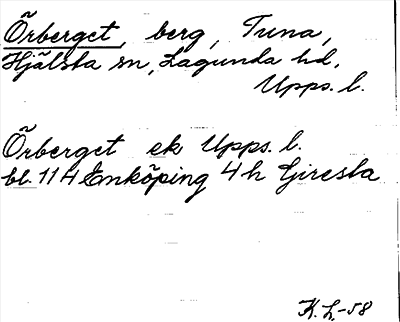 Örberget, berg, Tuna,
Hjälsta sn, Lagunda hd,
Upps. l.
Örberget ek Upps. l.
bl. 114 Enköping 4 h Giresta
K.L-58